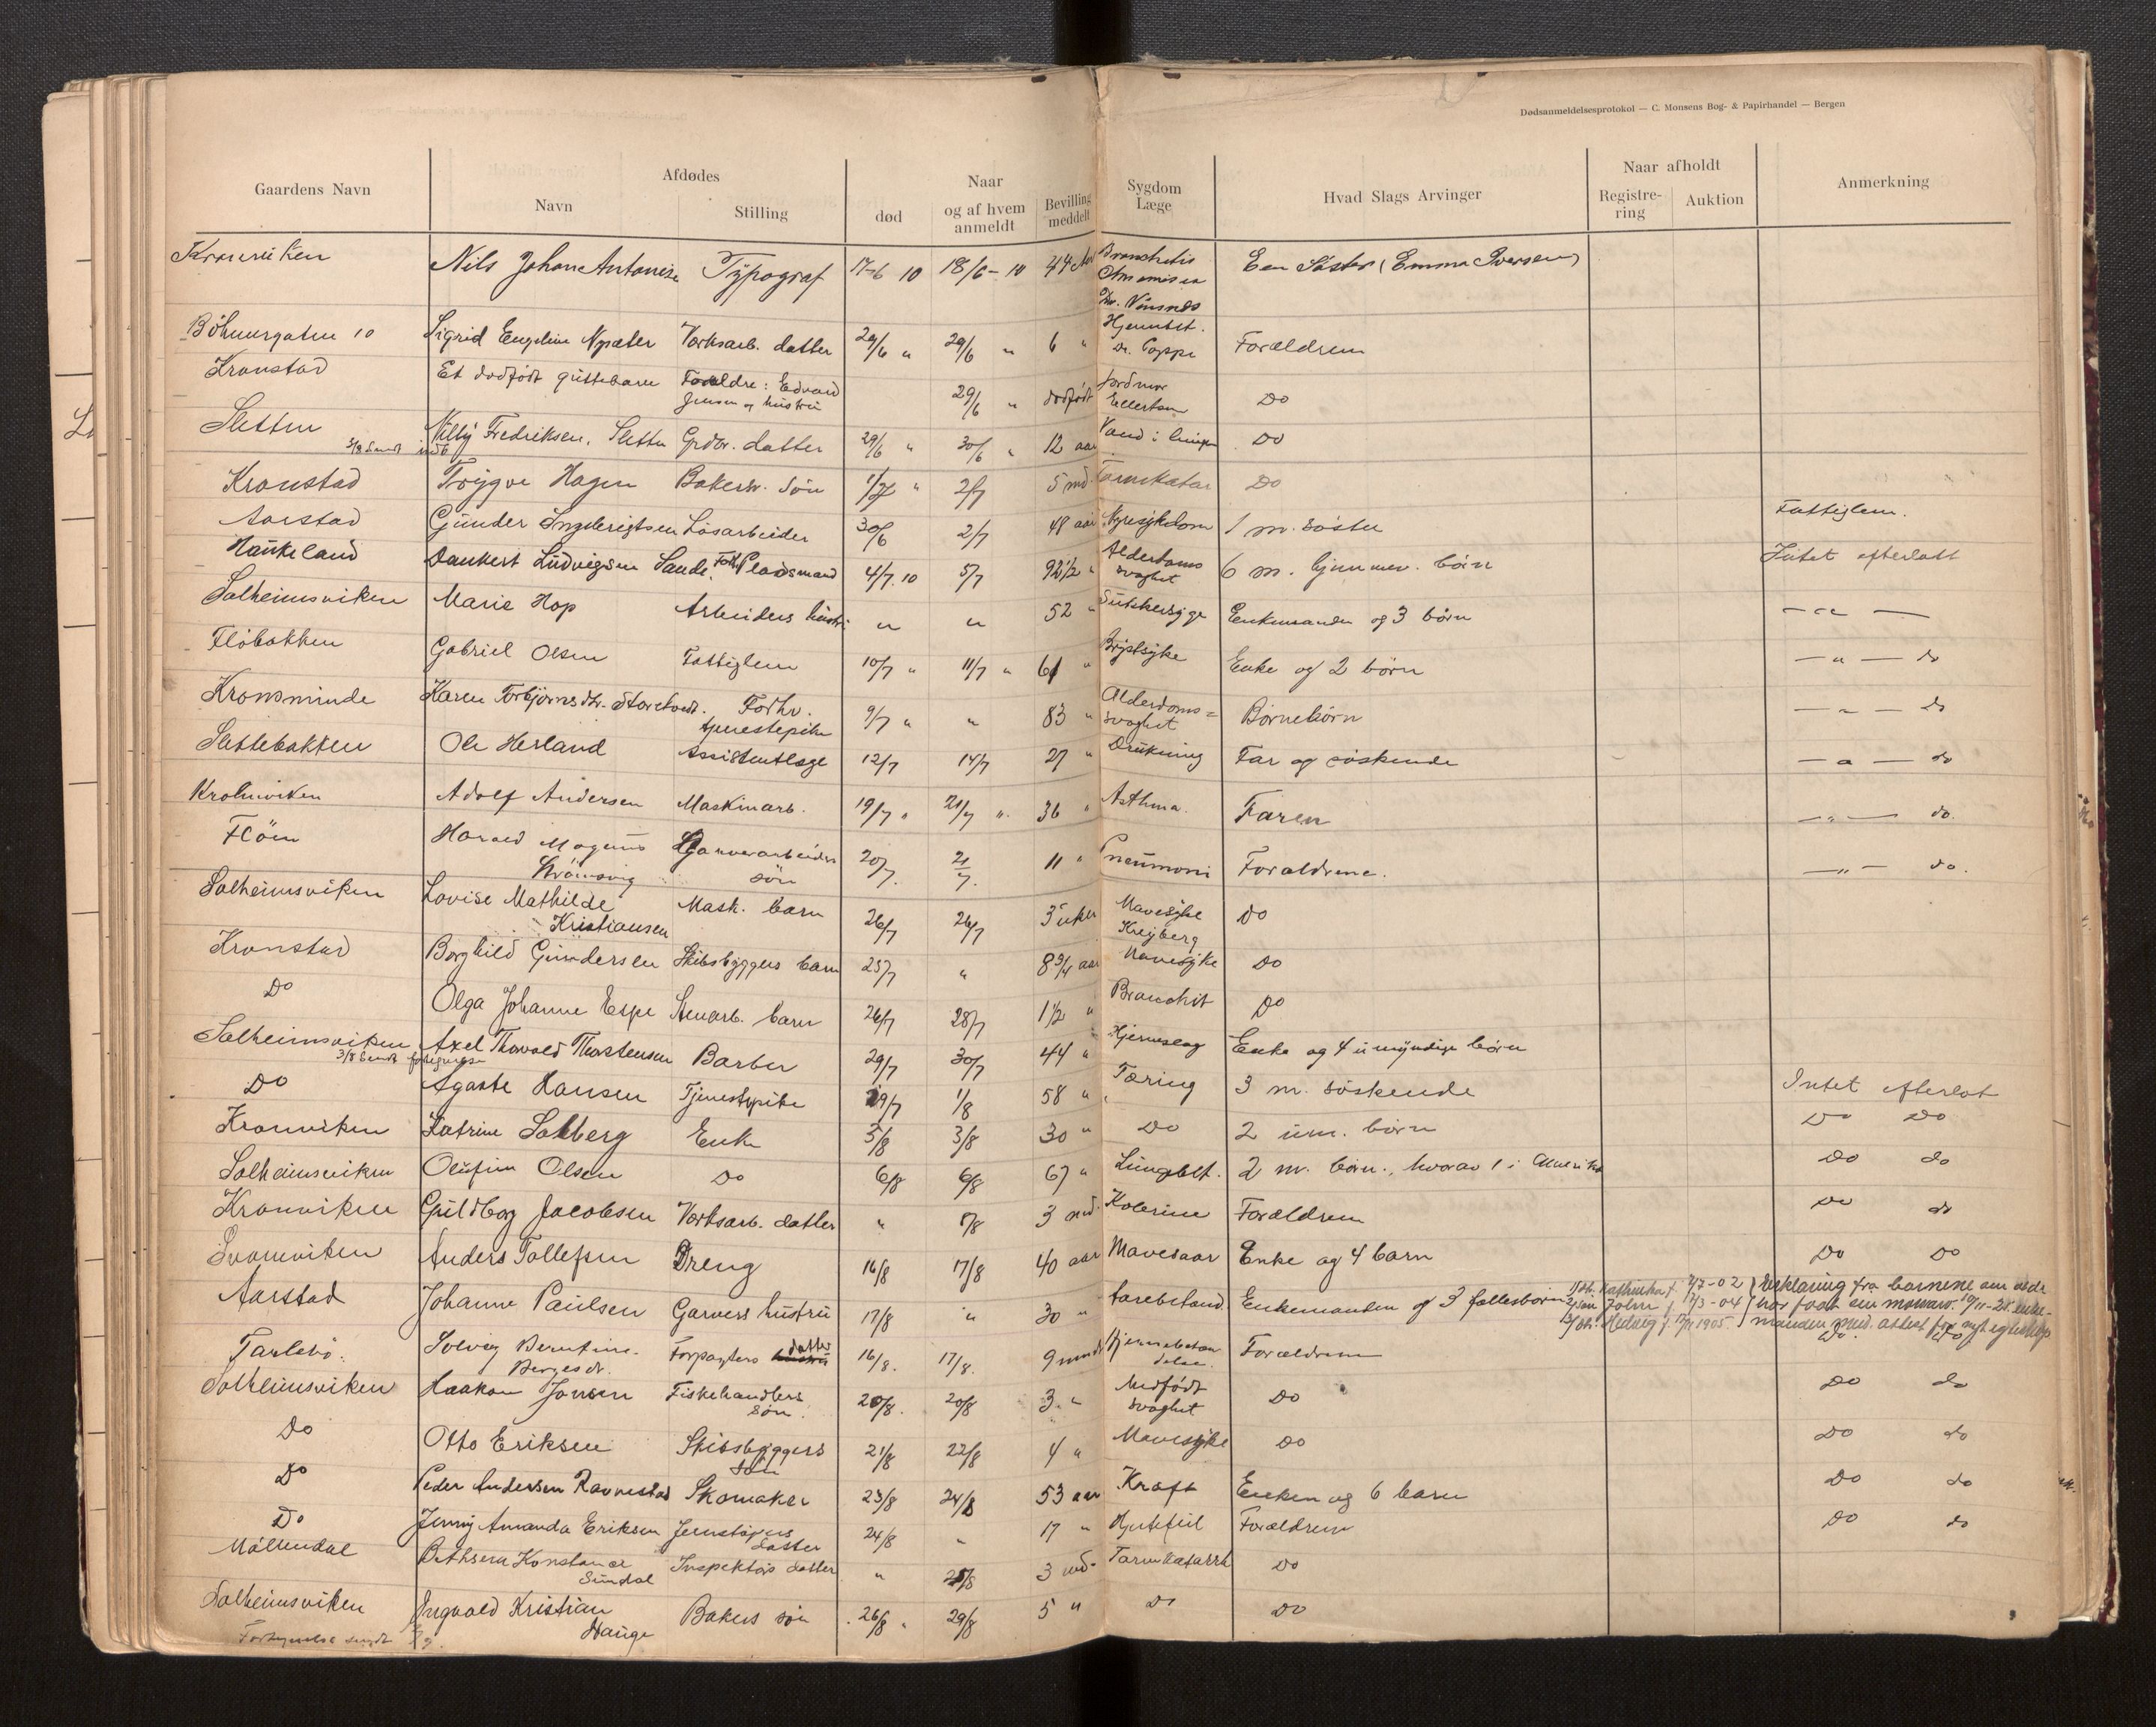 Dødsanmeldelsesprotokol — C. Monsens Bog- & Papirhandel — Bergen
Gaardens Navn Afdødes Navn Stilling død Naar og af hvem anmeldt Bevilling meddelt Sygdom Læge Hvad Slags Arvinger Naar afholdt Registrering Auktion Anmerkning
Kronviken Nils Johan Antonise Typograf 17-6 10 18/6-10 44 Bronchitis
Dr. Een Søster (Emma Iversen)
10 Sigrid Engeline Verksarb. datter 29/6 " 29/6 " 6 " Hjernebet.
Dr. Poppe Forældrene
Kronstad Et dødfødt guttebarn Forældre: Edvard
Jensen og hustru 29/6 " dødfødt Jordmor
Ellertsen Do
Sletten Nelly Fredriksen, Sletten Grdbr. datter 29/6 " 30/6 " 12 aar Vand i Do
Kronstad Trygve Hagen Bakersv. søn 1/7 " 2/7 5 md. Tarmkatar Do
Aarstad Gunder Ingebrigtsen Løsarbeider 30/6 2/7 48 aar Nyresykdom 1 m. søster Fattiglem.
Haukeland Dankert Ludvigsen Sande. Forh. Pladsmand 4/7.10 5/7 92 1/2 " Alderdoms
svaghet 6 m. hjemmev. børn Intet efterlatt
Solheimsviken Marie Hop Arbeiders hustru " " 52 " Sukkersyge Enkemanden og 3 børn — " —
Fløbakken Gabriel Olsen Fattiglem 10/7 " 11/7 " 61 " Brystsyke Enke og 2 børn — " — do
Kronsminde Karen Torbjørnsdtr. Storetvedt. Forhv.
tjenestepike 9/7 " " 83 " Alderdoms=
svaghet Børnebørn — " — do
Slettebakken Ole Herland Assistentlæge 12/7 14/7 27 " Drukning Far og søskende — " — do
Kronviken Adolf Andersen Maskinarb. 19/7 " 21/7 " 36 " Asthma. Faren — " — do.
Fløen Harald Magnus
Strømsvig Garverarbeiders
søn 20/7. 21/7. 11 " Pneumoni Forældrene. — " — do.
Solheimsviken Lovise Mathilde
Kristiansen Mask. barn 26/7 26/7 3 uker Mavesyke
Krejberg Do
Kronstad Borghild Gundersen Skibsbyggers barn 25/7 " 8 3/4 aar Mavesyke Do
Do Olga Johanne Espe Stenarb. barn 26/7 28/7 1 1/2 " Bronchit Do
Solheimsviken Axel Thorvald Thorstensen Barber 29/7 30/7 44 " Hjerneslag Enke og 4 umyndige børn
3/8 Sendt
Do Agaate Hansen Tjenestepike 29/7 1/8 58 " Tæring 3 m. søskende Intet efterlat
Kronviken Katrine Solberg Enke 5/8 3/8 30 " Do 2 um. børn Do Do
Solheimsviken Olufine Olsen Do 6/8 6/8 67 " Lungebet. 2 m. børn., hvorav 1 i Amerika Do do
Kronviken Guldborg Jacobsen Verksarb. datter " 8/8 3 md. Kolerine Forældrene Do do
Svaneviken Anders Tollefsen Dreng 16/8 17/8 40 aar Mavesaar Enke og 4 barn Do Do
Aarstad Johanne Paulsen Garvers hustru 17/8 " 30 " Enkemanden og 3 fællesbørn 1) dtr. Kathinka f. 7/7-02 Erklæring fra barnene om at de
2) søn John f. 12/3-04 har faat sin morsarv. 10/11-28.
3) dtr. Hedvig f. 1905. manden med. attest for nyt egteskap
Tarlebø. Solveig Berntine
Bergesdr. Forpagters datter 16/8. 17/8. 9 mndr Hjernebetæn
delse. Forældrene Do. Do
Solheimsviken Haakon Jonsen Fiskehandlers
søn. 20/8. 20/8 3. " Medfødt
svaghet Do Do do
Do Otto Eriksen Skibsbyggers
søn 21/8 22/8 4 " Mavesyke Do Do do
Do Peder Andersen Ravnestad Skomaker 23/8 24/8 53 aar Kræft Enken og 6 barn Do do
Do Jenny Amanda Eriksen Jernstøpers
datter 24/8 " 17 " Hjertefeil Forældrene Do do
Møllendal Bethsera Konstance
Sundal Inspektørs datter " 25/8 3 md. Tarmkatarrh Do
Solheimsviken Ingvald Kristian
Hauge Bakers søn 26/8 " 29/8 5 " Do Do